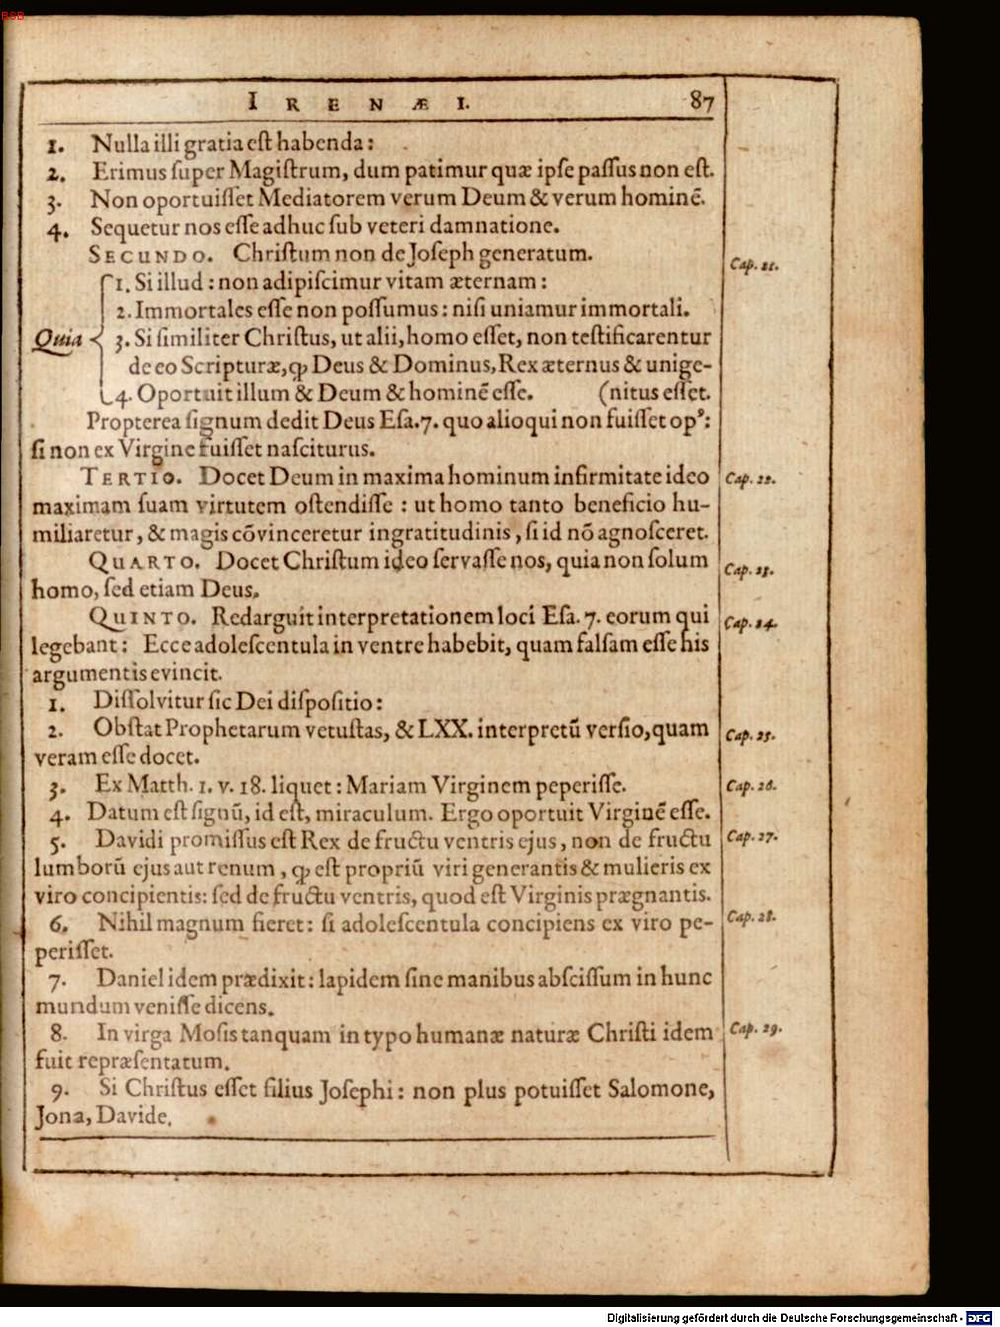 BSB
IRENÆ I. 87
1. Nulla illi gratia eſt habenda:
2. Erimus ſuper Magiſtrum, dum patimur quæ ipſe paſſus non eſt.
3. Non oportuiſſet Mediatorem verum Deum & verum hominē.
4. Sequetur nos eſſe adhuc ſub veteri damnatione.
SECUNDO. Chriſtum non de Joſeph generatum. Cap. 21.
1. Si illud: non adipiſcimur vitam æternam:
2. Immortales eſſe non poſſumus: niſi uniamur immortali.
Quia 3. Si ſimiliter Chriſtus, ut alii, homo eſſet, non teſtificarentur
de eo Scripturæ, ꝙ Deus & Dominus, Rex æternus & unige-
4. Oportuit illum & Deum & hominē eſſe. (nitus eſſet.
Propterea ſignum dedit Deus Eſa. 7. quo alioqui non fuiſſet opꝰ:
ſi non ex Virgine fuiſſet naſciturus.
TERTIO. Docet Deum in maxima hominum infirmitate ideo Cap. 22.
maximam ſuam virtutem oſtendiſſe: ut homo tanto beneficio hu-
miliaretur, & magis cōvinceretur ingratitudinis, ſi id nō agnoſceret.
QUARTO. Docet Chriſtum ideo ſervaſſe nos, quia non ſolum Cap. 23.
homo, ſed etiam Deus.
QUINTO. Redarguit interpretationem loci Eſa. 7. eorum qui Cap. 24.
legebant: Ecce adoleſcentula in ventre habebit, quam falſam eſſe his
argumentis evincit.
1. Diſſolvitur ſic Dei diſpoſitio:
2. Obſtat Prophetarum vetuſtas, & LXX. interpretū verſio, quam Cap. 25.
veram eſſe docet.
3. Ex Matth. 1. v. 18. liquet: Mariam Virginem peperiſſe. Cap. 26.
4. Datum eſt ſignū, id eſt, miraculum. Ergo oportuit Virginē eſſe.
5. Davidi promiſſus eſt Rex de fructu ventris ejus, non de fructu Cap. 27.
lumborū ejus aut renum, ꝙ eſt propriū viri generantis & mulieris ex
viro concipientis: ſed de fructu ventris, quod eſt Virginis prægnantis.
6. Nihil magnum fieret: ſi adoleſcentula concipiens ex viro pe- Cap. 28.
periſſet.
7. Daniel idem prædixit: lapidem ſine manibus abſciſſum in hunc
mundum veniſſe dicens.
8. In virga Moſis tanquam in typo humanæ naturæ Chriſti idem Cap. 29.
fuit repræſentatum.
9. Si Chriſtus eſſet filius Joſephi: non plus potuiſſet Salomone,
Jona, Davide.
Digitalisierung gefördert durch die Deutsche Forschungsgemeinschaft - DFG